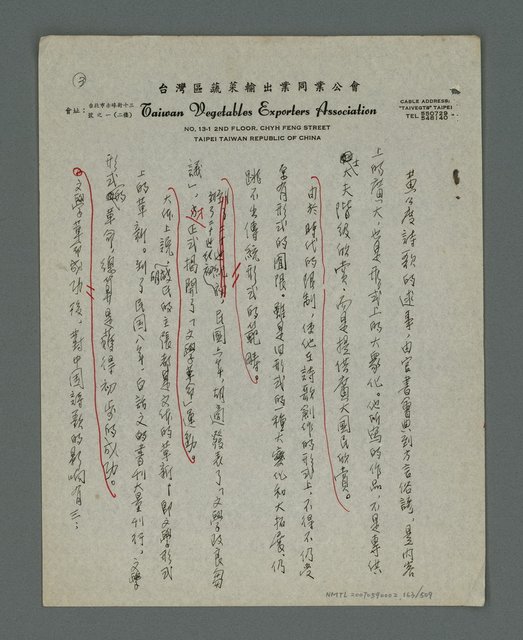 ③
台灣區蔬菜輸出業同業公會
會址：台北市赤峰街十三號之一（二樓）
Taiwan Vegetables Exporters Association
NO. 13-1 2ND FLOOR, CHYH FENG STREET
TAIPEI TAIWAN REPUBLIC OF CHINA
CABLE ADDRESS:
"TAIVEGTS" TAIPEI
TEL 550729
546140
黃公度詩歌的述事，由官書會典到方言俗諺，是內容
上的廣大，也是形式上的大衆化。他所寫的作品，不是專供
士大夫階級欣賞，而是提供廣大國民欣賞。
由於時代的限制，使他在詩歌創作的形式上，不得不仍受
舊有形式的圈限。雖是旧形式的一種大衆化和大拓展，仍
跳不出傳統形式的範疇。
到了二十世紀初，民國六年胡適發表了「文學改良芻
議」，正式揭開了「文學革命」運動。
大体上說，胡氏的主張都是文体的革新！即文學形式
上的革新。到了民國八年，白話文的書刊大量刊行。文學
形式的革命，總算是獲得初步的成功。
文學革命成功後，對中國詩歌的影响有三：
NMTL 20070590002 163/509